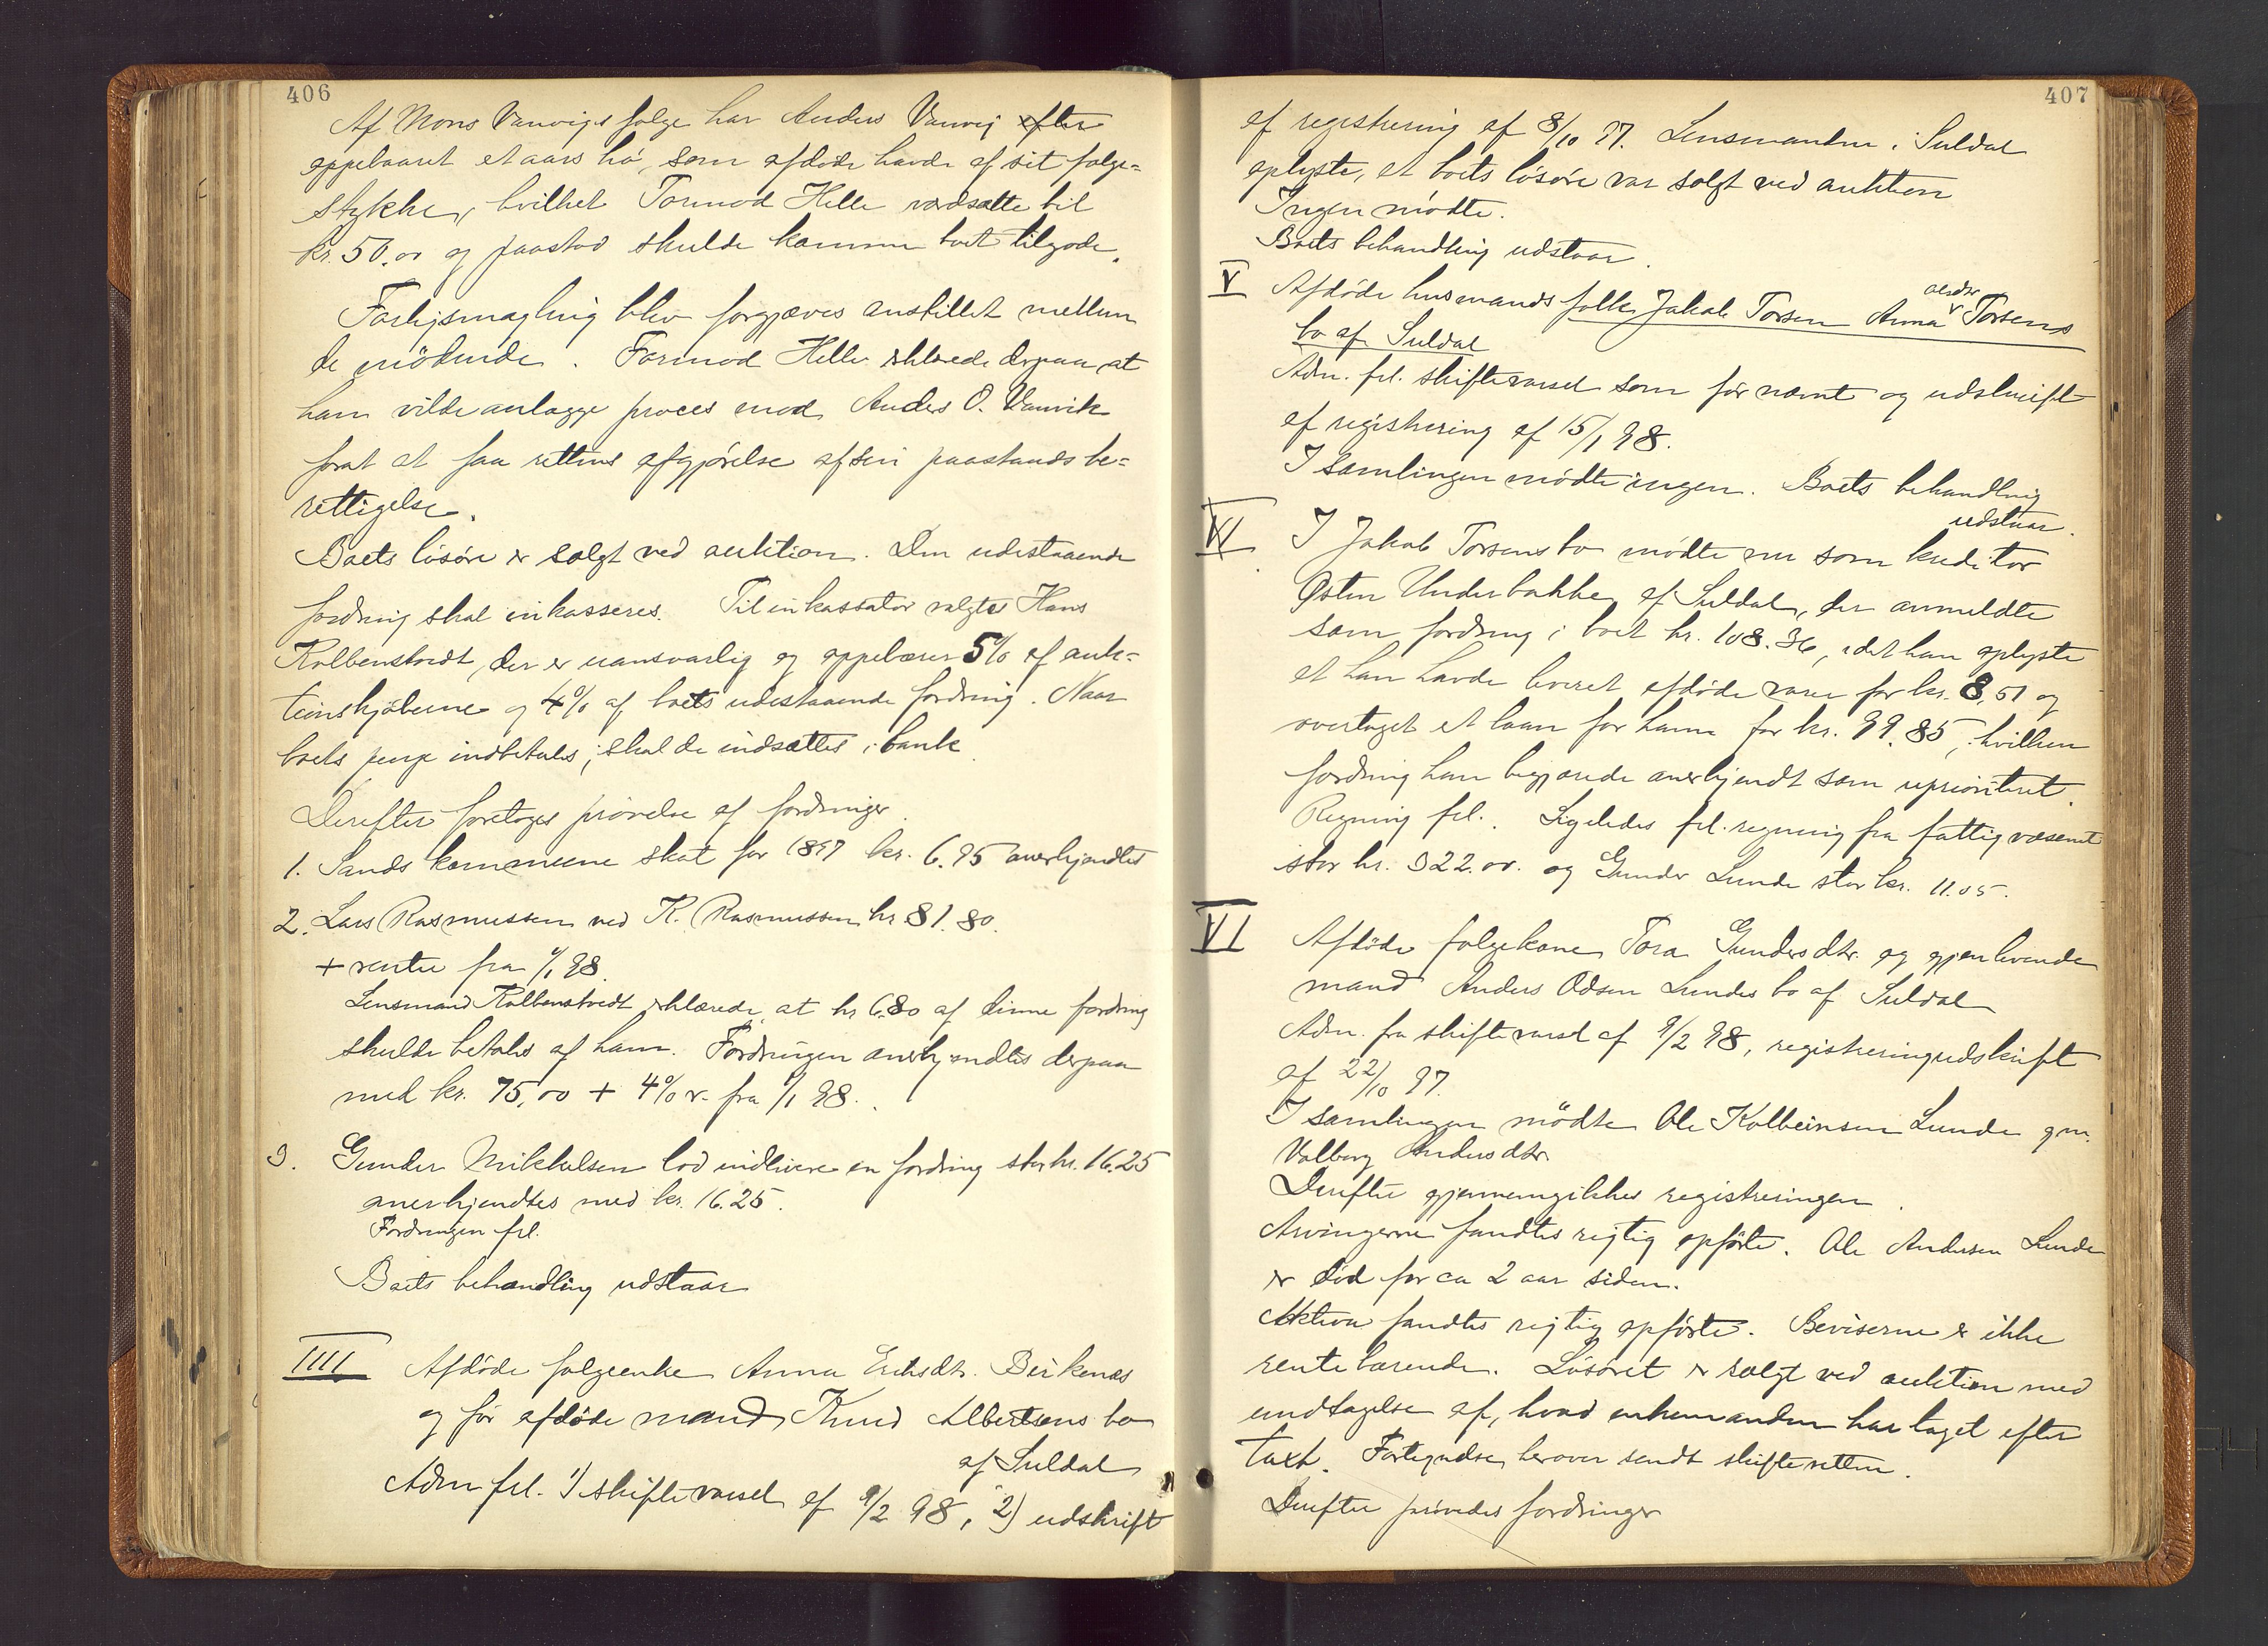 406
Af Mons Vanvigs følge har Anders Vanvig efter
oppebaaret et aars hö, som afdøde havde af sit følge=
stykke, hvilket Tormod Helle værdsatte til
kr. 50.00 og paastod skulde komme boet tilgode.
Forligsmægling blev forgjæves anstillet mellem
de mödende. Tormod Helle erklærede derpaa at
han vilde anlægge proces mod Anders O. Vanvik
forat at faa rettens afgjörelse af sin paastands be=
rettigelse.
Boets lösöre er solgt ved auktion. Den udestaaende
fordring skal inkasseres. Til inkassator valgtes Hans
Kolbenstvedt, der er uansvarlig og oppebærer 5% af auk=
tionskjöbene og 4% af boets udestaaende fordring. Naar
boets penge indbetales, skal de indsættes i bank.
Derefter foretoges prövelse af fordringer.
1. Sands kommune skat for 1897 kr. 6.95 anerkjendtes
2. Lars Rasmussen ved K. Rasmussen kr 81.80.
+ renter fra 1/1 98.
Lensmand Kolbenstvedt erklærede, at kr 6.80 af denne fordring
skulde betales af ham. Fordringen anerkjendtes derpaa
med kr. 75,00 + 4% r. fra 1/1 98.
3. Gunder Mikkelsen lod indlevere en fordring stor kr. 16.25
anerkjendtes med kr. 16.25.
Fordringen frl.
Boets behandling udstaar
IIII Afdöde følgeenke Anna Eriksdtr. Birkenes
og för afdöde mand Knud Albertsens bo
af Suldal
Adm frl. 1) skiftevarsel af 9/2 98, 2) udskrift
407
af registrering af 8/10 97. Lensmanden i Suldal
oplyste, at boets lösöre var solgt ved auktion
Ingen mödte.
Boets behandling udstaar.
V Afdöde husmandsfolk Jakob Torsen Anna Torsens
bo af Suldal
Adm. frl. skiftevarsel som för nævnt og udskrift
af registrering af 15/1 98.
I samlingen mödte ingen. Boets behandling
udstaar.
I Jakob Torsens bo mödte nu som kreditor
Østen Underbakke af Suldal, der anmeldte
som fordring i boet kr. 108.36, idet han oplyste
at han havde leveret afdöde varer for kr. 8,51 og
overtaget et laan for ham for kr. 99.85, hvilken
fordring han begjærede anerkjendt som uprioriteret.
Regning frl. Ligeledes frl. regning fra fattigvæsenet
stor kr. 322.00. og Gunder Lunde stor kr. 11.05.
VI Afdöde følgekone Tora Gundersdtr. og gjenlevende
mand Anders Odsen Lundes bo af Suldal
Adm. fra skiftevarsel af 9/2 98, registreringsudskrift
af 22/10 97.
I samlingen mödte Ole Kolbeinsen Lunde gm.
Valborg Andersdtr.
Derefter gjennemgikkes registreringen.
Arvingerne fandtes rigtig opförte. Ole Andersen Lunde
er död for ca 2 aar siden.
Aktiva fandtes rigtig opförte. Beviserne er ikke
rentebærende. Lösöret er solgt ved auktion med
undtagelse af, hvad enkemanden har taget efter
taxt. Fortegnelse herover sendt skifteretten.
Derefter prövedes fordringer